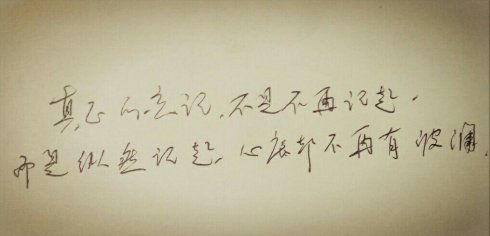 真正的忘记，不是不再记起，
而是纵然记起，心底却不再有波澜。